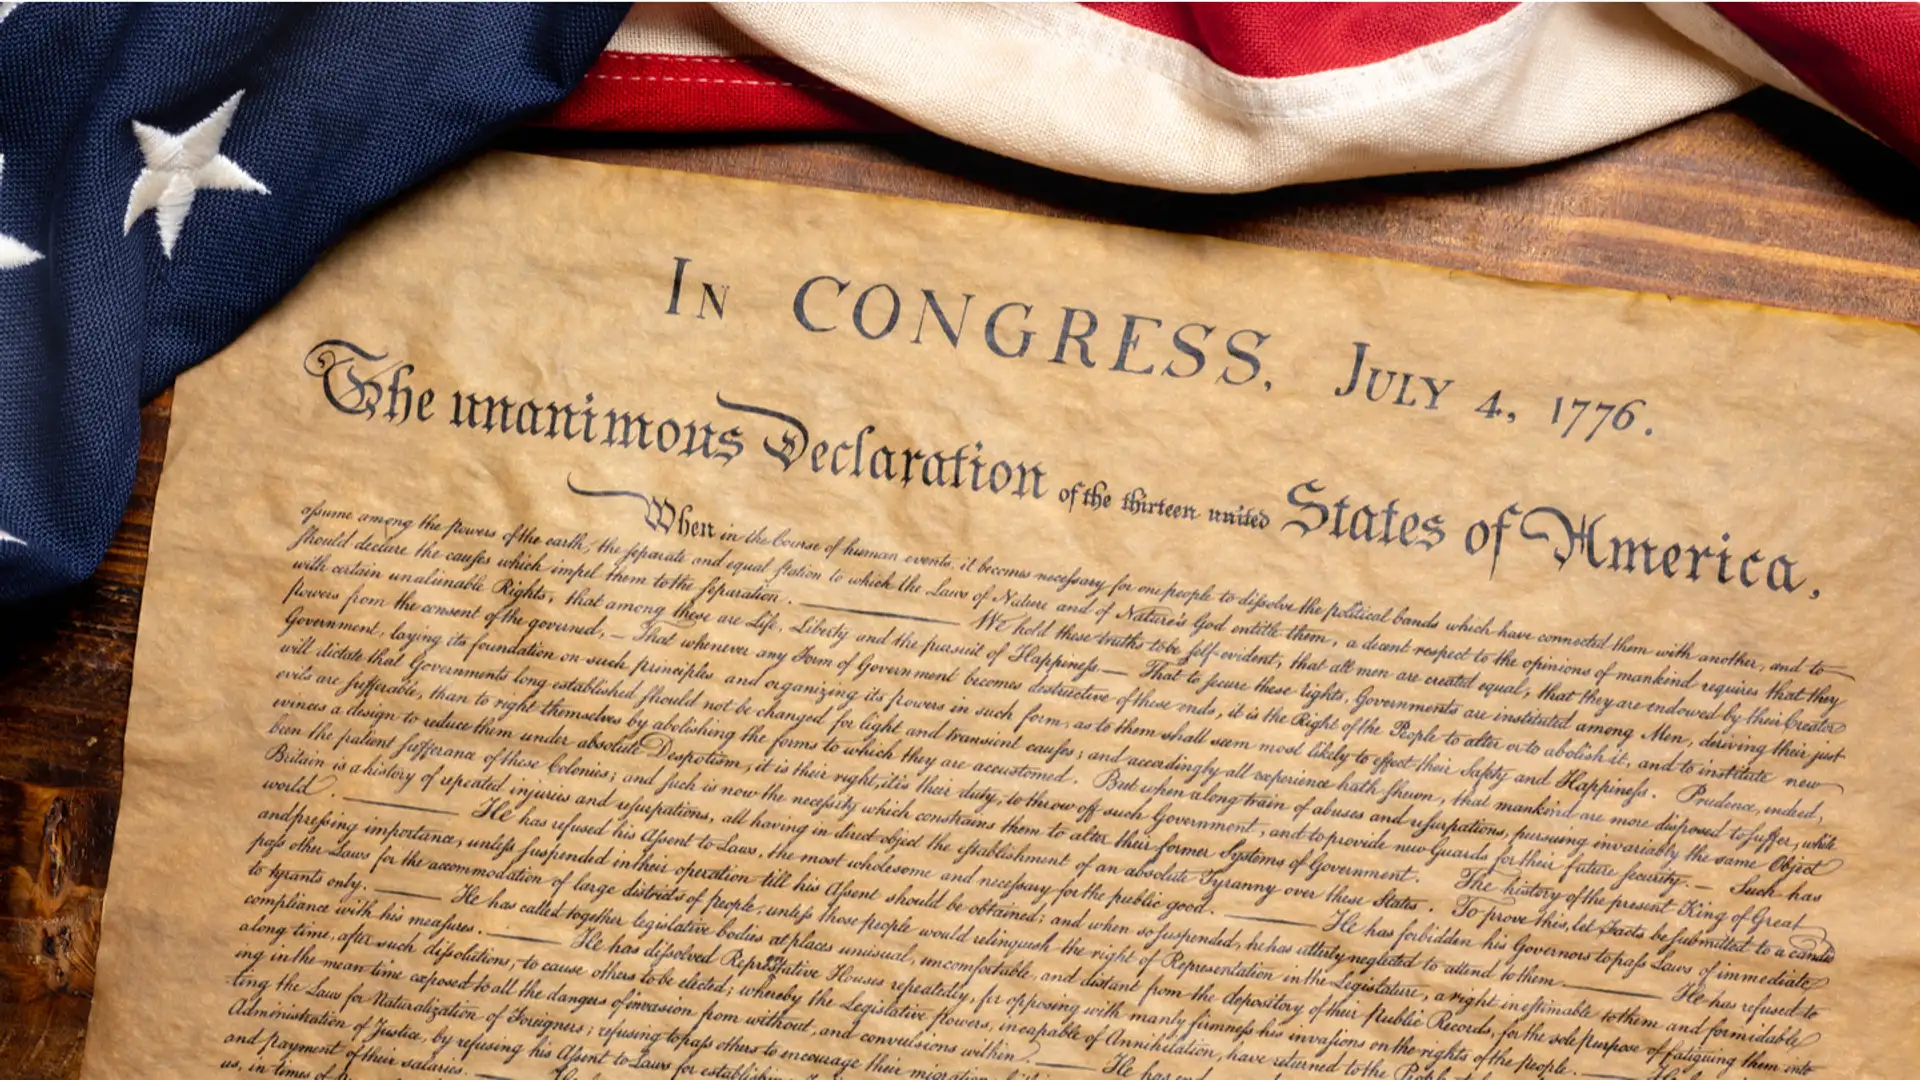 In CONGRESS, July 4, 1776.
The unanimous Declaration of the thirteen united States of America,
When in the Course of human events, it becomes necessary for one people to dissolve the political bands which have connected them with another, and to
assume among the powers of the earth, the separate and equal station to which the Laws of Nature and of Nature's God entitle them, a decent respect to the opinions of mankind requires that they
should declare the causes which impel them to the separation. We hold these truths to be self-evident, that all men are created equal, that they are endowed by their Creator
with certain unalienable Rights, that among these are Life, Liberty and the pursuit of Happiness — That to secure these rights, Governments are instituted among Men, deriving their just
powers from the consent of the governed, — That whenever any Form of Government becomes destructive of these ends, it is the Right of the People to alter or to abolish it, and to institute new
Government, laying its foundation on such principles and organizing its powers in such form, as to them shall seem most likely to effect their Safety and Happiness. Prudence, indeed,
will dictate that Governments long established should not be changed for light and transient causes; and accordingly all experience hath shewn, that mankind are more disposed to suffer, while
evils are sufferable, than to right themselves by abolishing the forms to which they are accustomed. But when a long train of abuses and usurpations, pursuing invariably the same Object
evinces a design to reduce them under absolute Despotism, it is their right, it is their duty, to throw off such Government, and to provide new Guards for their future security. — Such has
been the patient sufferance of these Colonies; and such is now the necessity which constrains them to alter their former Systems of Government. The history of the present King of Great
Britain is a history of repeated injuries and usurpations, all having in direct object the establishment of an absolute Tyranny over these States. To prove this, let Facts be submitted to a candid
world. He has refused his Assent to Laws, the most wholesome and necessary for the public good. He has forbidden his Governors to pass Laws of immediate
and pressing importance, unless suspended in their operation till his Assent should be obtained; and when so suspended, he has utterly neglected to attend to them. He has refused to
pass other Laws for the accommodation of large districts of people, unless those people would relinquish the right of Representation in the Legislature, a right inestimable to them and formidable
to tyrants only. He has called together legislative bodies at places unusual, uncomfortable, and distant from the depository of their Public Records, for the sole purpose of fatiguing them into
compliance with his measures. He has dissolved Representative Houses repeatedly, for opposing with manly firmness his invasions on the rights of the people. He
along time, after such dissolutions, to cause others to be elected; whereby the Legislative powers, incapable of Annihilation, have returned to the People
ing in the mean time exposed to all the dangers of invasion from without, and convulsions within. He has
ting the Laws for Naturalization of Foreigners; refusing to pass others to encourage their migration
Administration of Justice, by refusing his Assent to Laws for
and payment of their salaries.
us, in times of